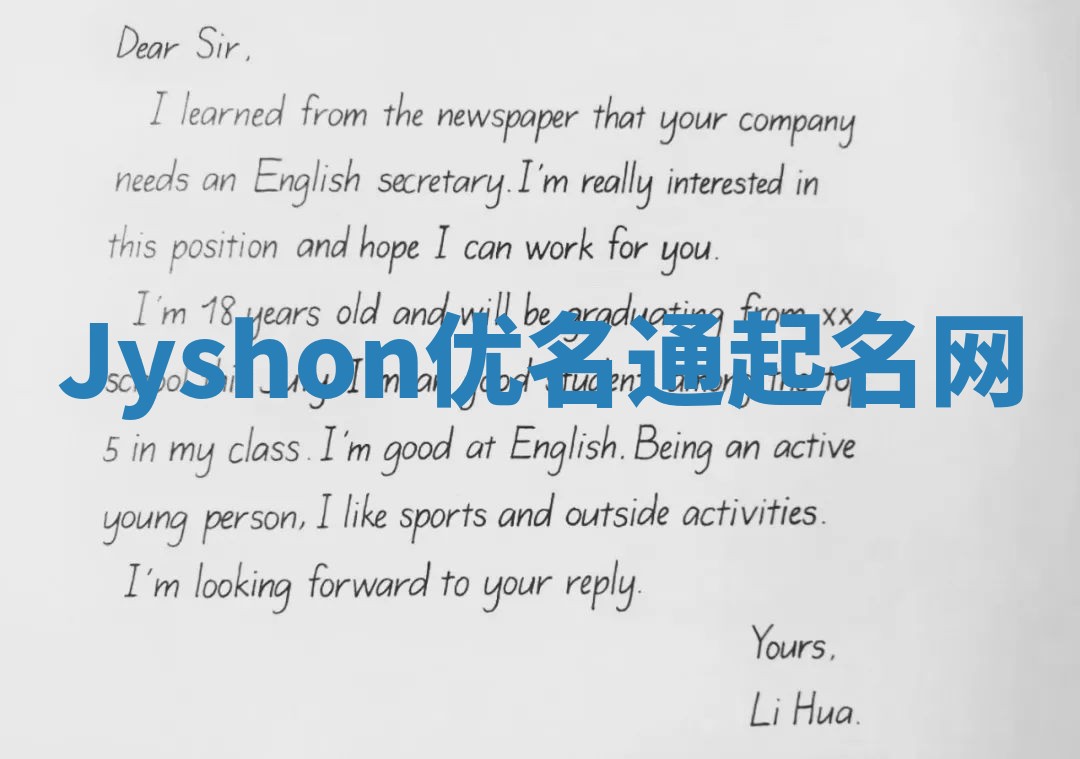 Dear Sir,
I learned from the newspaper that your company
needs an English secretary. I'm really interested in
this position and hope I can work for you.
I'm 18 years old and will be graduating from xx
Jyshon优名通起名网
school July. I'm a good student among the top
5 in my class. I'm good at English. Being an active
young person, I like sports and outside activities.
I'm looking forward to your reply.
Yours,
Li Hua.